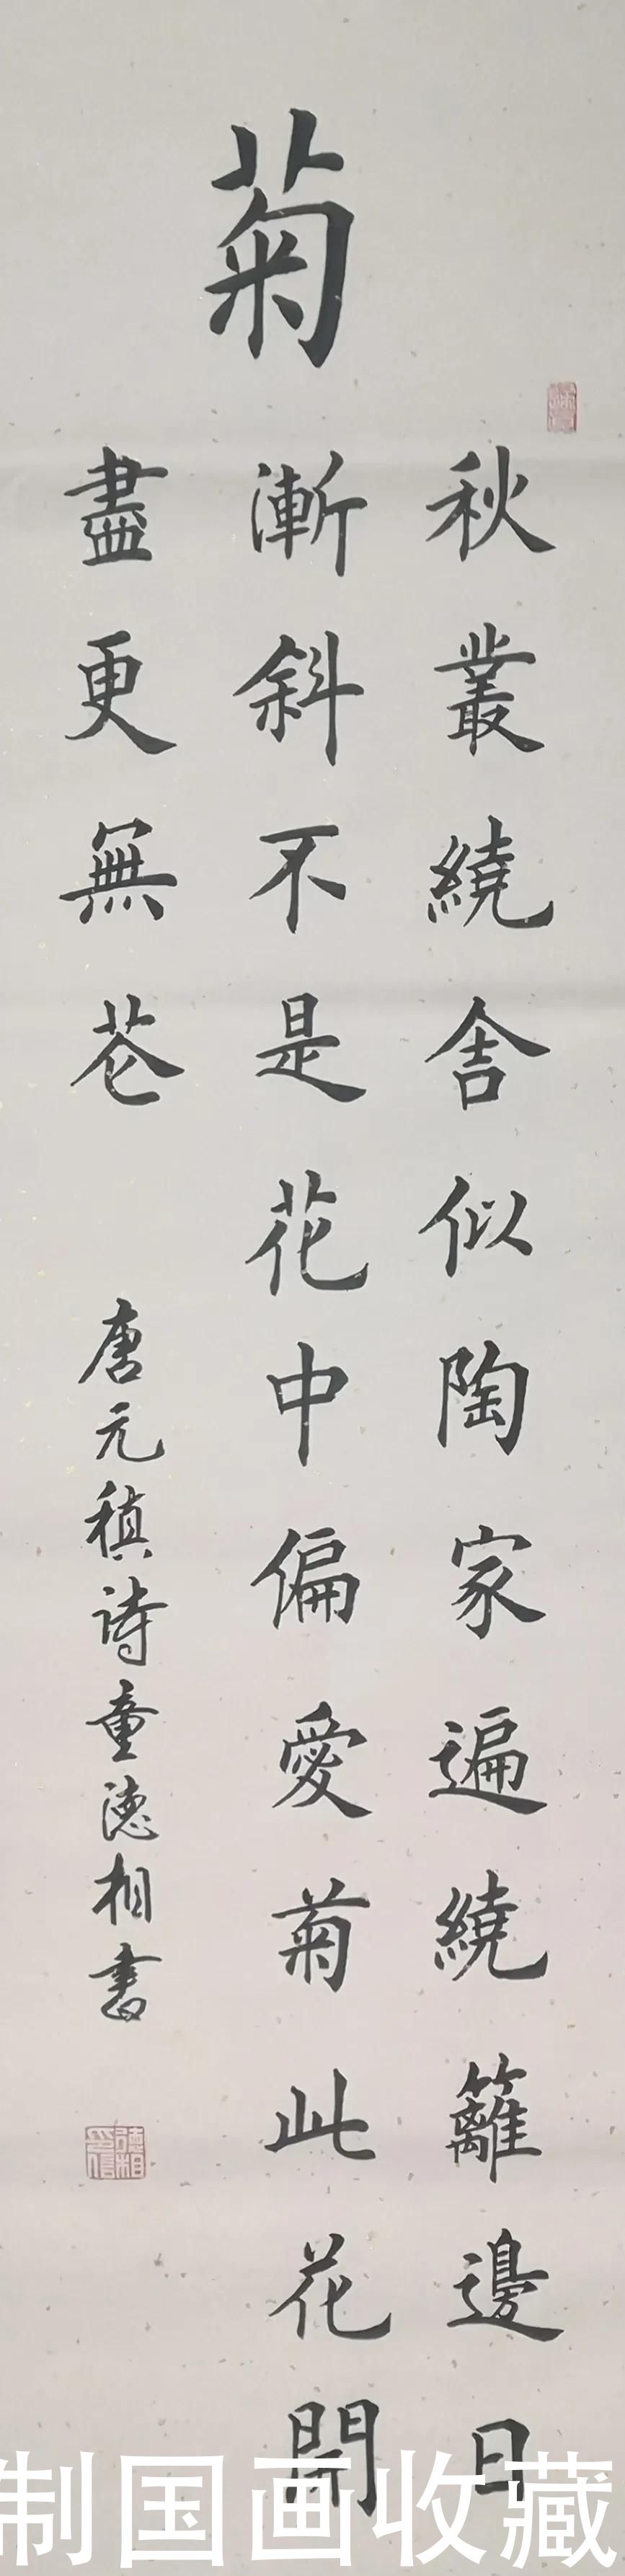 菊
秋叢繞舍似陶家遍繞籬邊日
漸斜不是花中偏愛菊此花開
盡更無苍
唐元稹诗童德相書
德相印信
制国画收藏